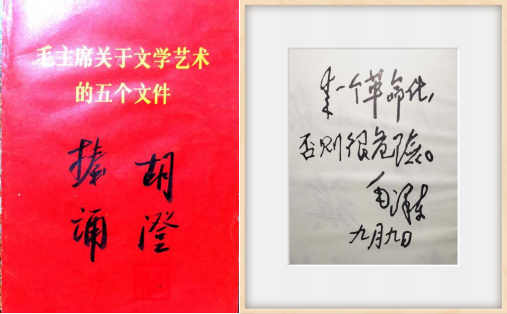 毛主席关于文学艺术
的五个文件
胡澄
捧诵
来一个革命化，
否则很危险。
毛泽东
九月九日